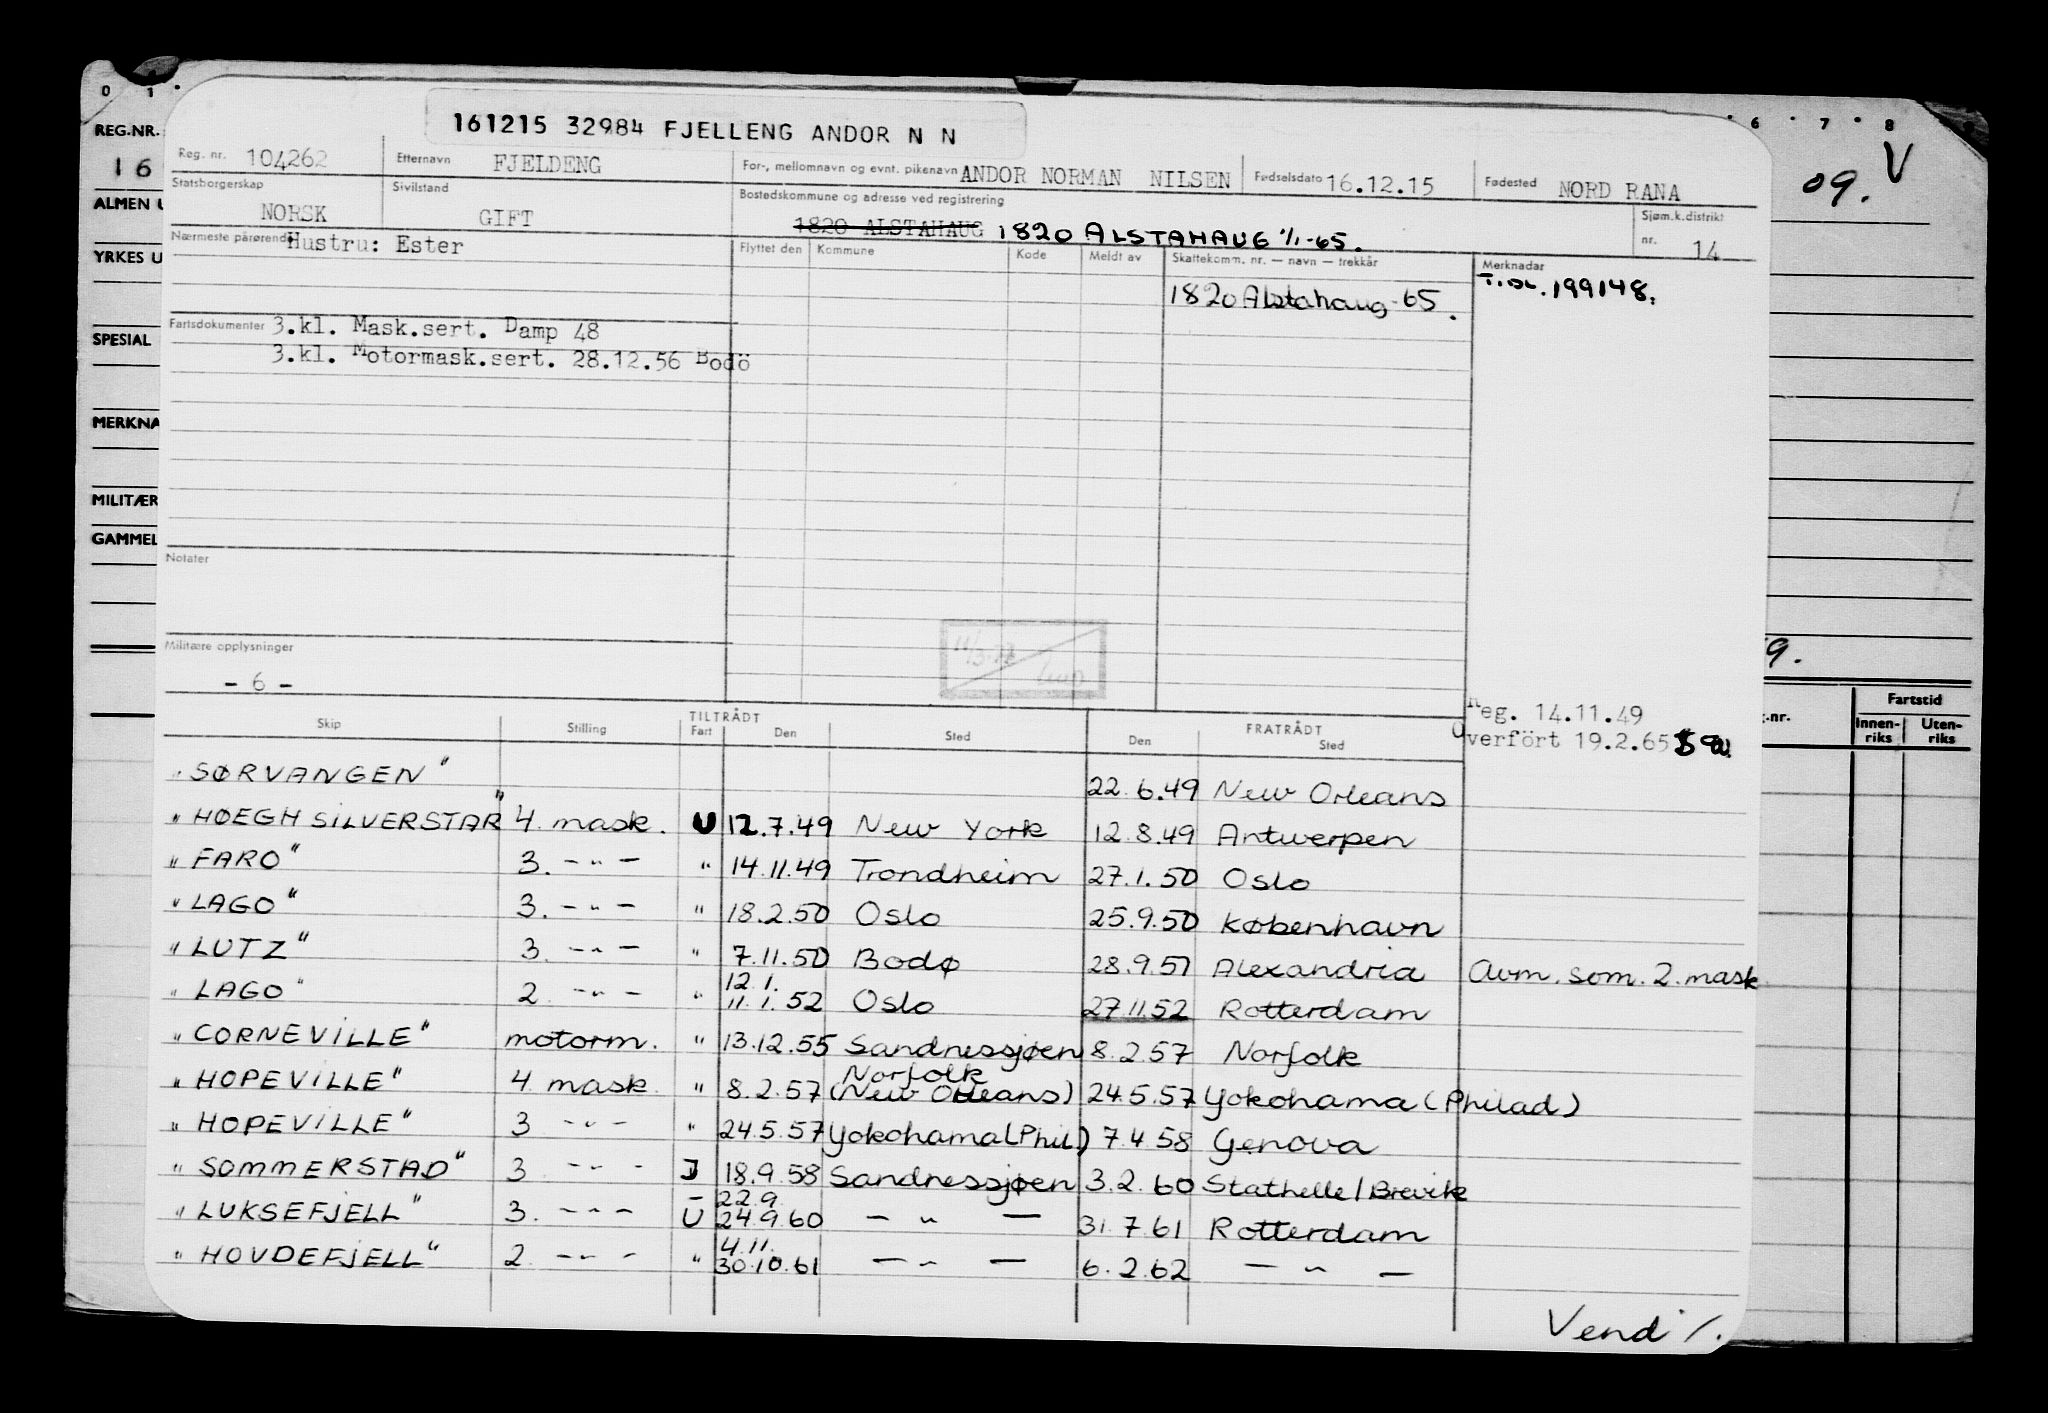 0 1 6 7 8
REG.NR.
16
ALMEN U
YRKES U
SPESIAL
MERKNA
MILITÆR
GAMMEL
161215 32984 FJELLENG ANDOR N N
Reg. nr. 104262 Etternavn FJELDENG For-, mellomnavn og evnt. pikenavn ANDOR NORMAN NILSEN Fødselsdato 16.12.15 Fødested NORD RANA
09. V
Statsborgerskap NORSK Sivilstand GIFT Bostedskommune og adresse ved registrering 1820 ALSTAHAUG 1820 ALSTAHAUG 1/1-65. Sjøm.k.distrikt nr. 14
Nærmeste pårørende Hustru: Ester Flyttet den Kommune Kode Meldt av Skattekomm. nr. — navn — trekkår Merknader
1820 Alstahaug -65. T.DL. 199148.
Fartsdokumenter 3.kl. Mask.sert. Damp 48
3.kl. Motormask.sert. 28.12.56 Bodö
Notater
Militære opplysninger
- 6 -
9.
Reg. 14.11.49
Overfört 19.2.65
Skip Stilling TILTRÅDT Fart Den Sted FRATRÅDT Den Sted
.nr. Fartstid Innen-riks Uten-riks
"SØRVANGEN" 22.6.49 New Orleans
"HØEGH SILVERSTAR" 4. mask. U 12.7.49 New York 12.8.49 Antwerpen
"FARO" 3. -"- " 14.11.49 Trondheim 27.1.50 Oslo
"LAGO" 3. -"- " 18.2.50 Oslo 25.9.50 København
"LUTZ" 3. -"- " 7.11.50 Bodø 28.9.51 Alexandria Avm. som. 2. mask.
12.1.
"LAGO" 2. -"- " 11.1.52 Oslo 27.11.52 Rotterdam
"CORNEVILLE" motorm. " 13.12.55 Sandnessjøen 8.2.57 Norfolk
Norfolk
"HOPEVILLE" 4. mask. " 8.2.57 (New Orleans) 24.5.57 Yokohama (Philad)
"HOPEVILLE" 3 -"- " 24.5.57 Yokohama (Phil.) 7.4.58 Genova
"SOMMERSTAD" 3 -"- J 18.9.58 Sandnessjøen 3.2.60 Stathelle/Brevik
22.9.
"LUKSEFJELL" 3. -"- U 24.9.60 - " - 31.7.61 Rotterdam
4.11.
"HOVDEFJELL" 2. -"- " 30.10.61 - " - 6.2.62 - " -
Vend ./.